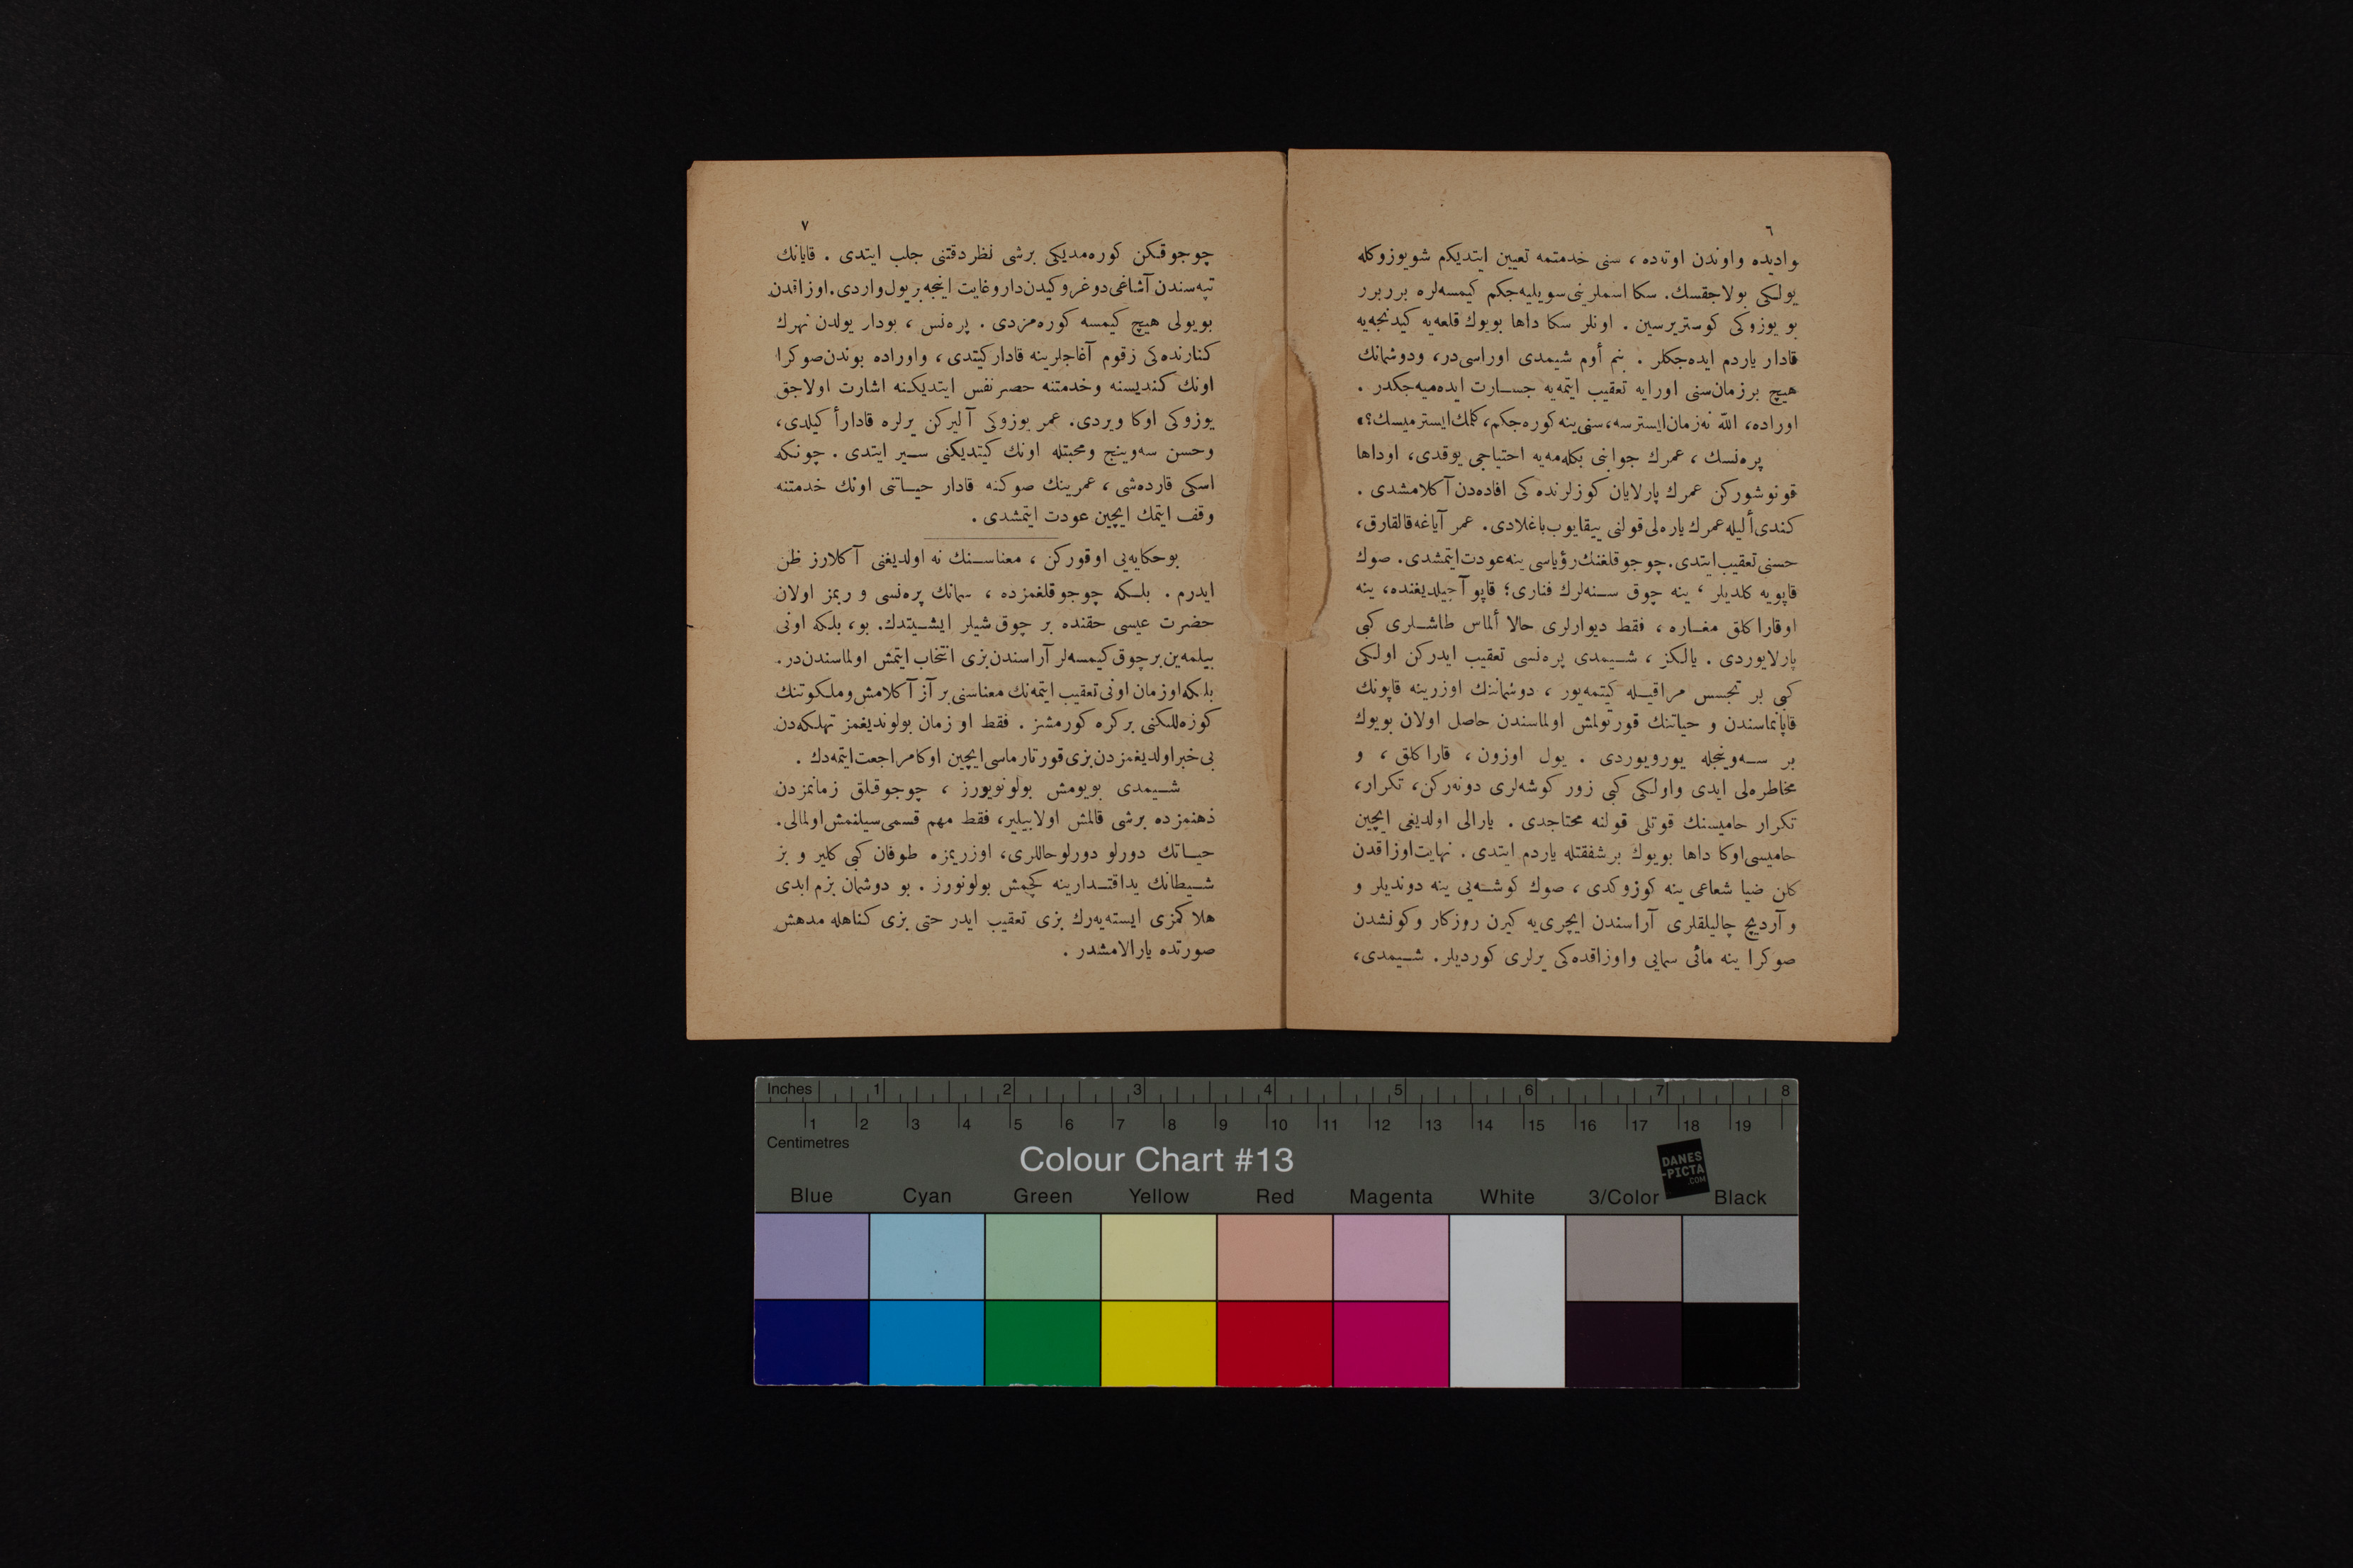 ٦
واديده واوندن اوتده ، سنی خدمتمه تعيين ايتديكم شويوزوكله
يولكی بولاجقسك. سكا اسملرينی سويليه‌جكم كيمسه‌لره برربرر
بو يوزوكی كوستريرسين . اونلر سكا داها بويوك قلعه‌يه كيدنجه‌يه
قادار ياردم ايده‌جكلر . بنم أوم شيمدی اوراسی در، ودوشمانك
هيچ برزمان‌سنی اورايه تعقيب ايتمه‌يه جسارت ايده‌ميه‌جكدر .
اوراده، اللّه نه‌زمان‌ايسترسه، سنی‌ينه كوره‌جكم، كلمك‌ايسترميسك؟»
پره‌نسك ، عمرك جوابنی بكله‌مه‌يه احتياجی يوقدی، اوداها
قونوشوركن عمرك پارلايان كوزلرنده كی افاده‌دن آكلامشدی .
كندی‌أليله عمرك ياره‌لی‌قولنی ييقايوب‌باغلادی. عمر آياغه‌قالقارق،
حسنی تعقيب ايتدی. چوجوقلغنك رؤياسی ينه عودت ايتمشدی. صوك
قاپويه كلديلر ؛ ينه چوق سنه‌لرك فناری؛ قاپو آچيلديغنده، ينه
اوقاراكلق مغاره ، فقط ديوارلری حالا ألماس طاشلری كبی
پارلايوردی . يالكز ، شيمدی پره‌نسی تعقيب ايدركن اولكی
كبی بر تجسس مراقيله كيتمه‌يور ، دوشماننك اوزرينه قاپونك
قاپانماسندن و حياتنك قورتولمش اولماسندن حاصل اولان بويوك
بر سه‌وينجله يورويوردی . يول اوزون، قاراكلق ، و
مخاطره‌لی ايدی واولكی كبی زور كوشه‌لری دونه‌ركن، تكرار،
تكرار حاميسنك قوتلی قولنه محتاجدی . يارالی اولديغی ايچين
حاميسی‌اوكا داها بويوك برشفقتله ياردم ايتدی . نهايت‌اوزاقدن
كلن ضيا شعاعی ينه كوزوكدی ، صوك كوشه‌يی ينه دونديلر و
و آرديچ چاليلقلری آراسندن ايچری‌يه كيرن روزكار وكونشدن
صوكرا ينه مائی سمايی واوزاقده‌كی يرلری كورديلر. شيمدی،
٧
چوجوقكن كوره‌مديكی برشی نظردقتنی جلب ايتدی . قايانك
تپه‌سندن آشاغی‌دوغروكيدن‌داروغايت اينجه‌بريول‌واردی.اوزاقدن
بويولی هيچ كيمسه كوره‌مزدی . پره‌نس ، بودار يولدن نهرك
كنارنده‌كی زقوم آغاجلرينه قاداركيتدی ، واوراده بوندن‌صوكرا
اونك كنديسنه وخدمتنه حصر نفس ايتديكنه اشارت اولاجق
يوزوكی اوكا ويردی. عمر يوزوكی آليركن يرلره قادارأكيلدی،
وحسن سه‌وينج ومحبتله اونك كيتديكنی سير ايتدی . چونكه
اسكی قارده‌شی ، عمرينك صوكنه قادار حياتنی اونك خدمتنه
وقف ايتمك ايچين عودت ايتمشدی .
بوحكايه‌يی اوقوركن ، معناسنك نه اولديغنی آكلارز ظن
ايدرم . بلكه چوجوقلغمزده ، سمانك پره‌نسی و ربمز اولان
حضرت عيسی حقنده بر چوق شيلر ايشيتدك. بو، بلكه اونی
بيلمه‌ين برچوق كيمسه‌لر آراسندن‌بزی انتخاب ايتمش اولماسندن‌در.
بلكه‌اوزمان اونی‌تعقيب ايتمه‌نك معناسنی بر آز آكلامش‌وملكوتنك
كوزه‌للكنی بركره كورمشز . فقط او زمان بولونديغمز تهلكه‌دن
بی خبراولديغمزدن‌بزی‌قورتارماسی‌ايچين اوكا مراجعت‌ايتمه‌دك .
شيمدی بويومش بولونويورز ، چوجوقلق زمانمزدن
ذهنمزده برشی قالمش اولابيلير، فقط مهم قسمی‌سيلنمش‌اولمالی.
حياتك دورلو دورلوحاللری، اوزريمزه طوفان كبی كلير و بز
شيطانك يداقتدارينه كچمش بولونورز . بو دوشمان بزم ابدی
هلاكمزی ايسته‌يه‌رك بزی تعقيب ايدر حتی بزی كناهله مدهش
صورتده يارالامشدر .
Inches 1 2 3 4 5 6 7 8
1 2 3 4 5 6 7 8 9 10 11 12 13 14 15 16 17 18 19
Centimetres
Colour Chart #13
DANES
-PICTA
.COM
Blue Cyan Green Yellow Red Magenta White 3/Color Black